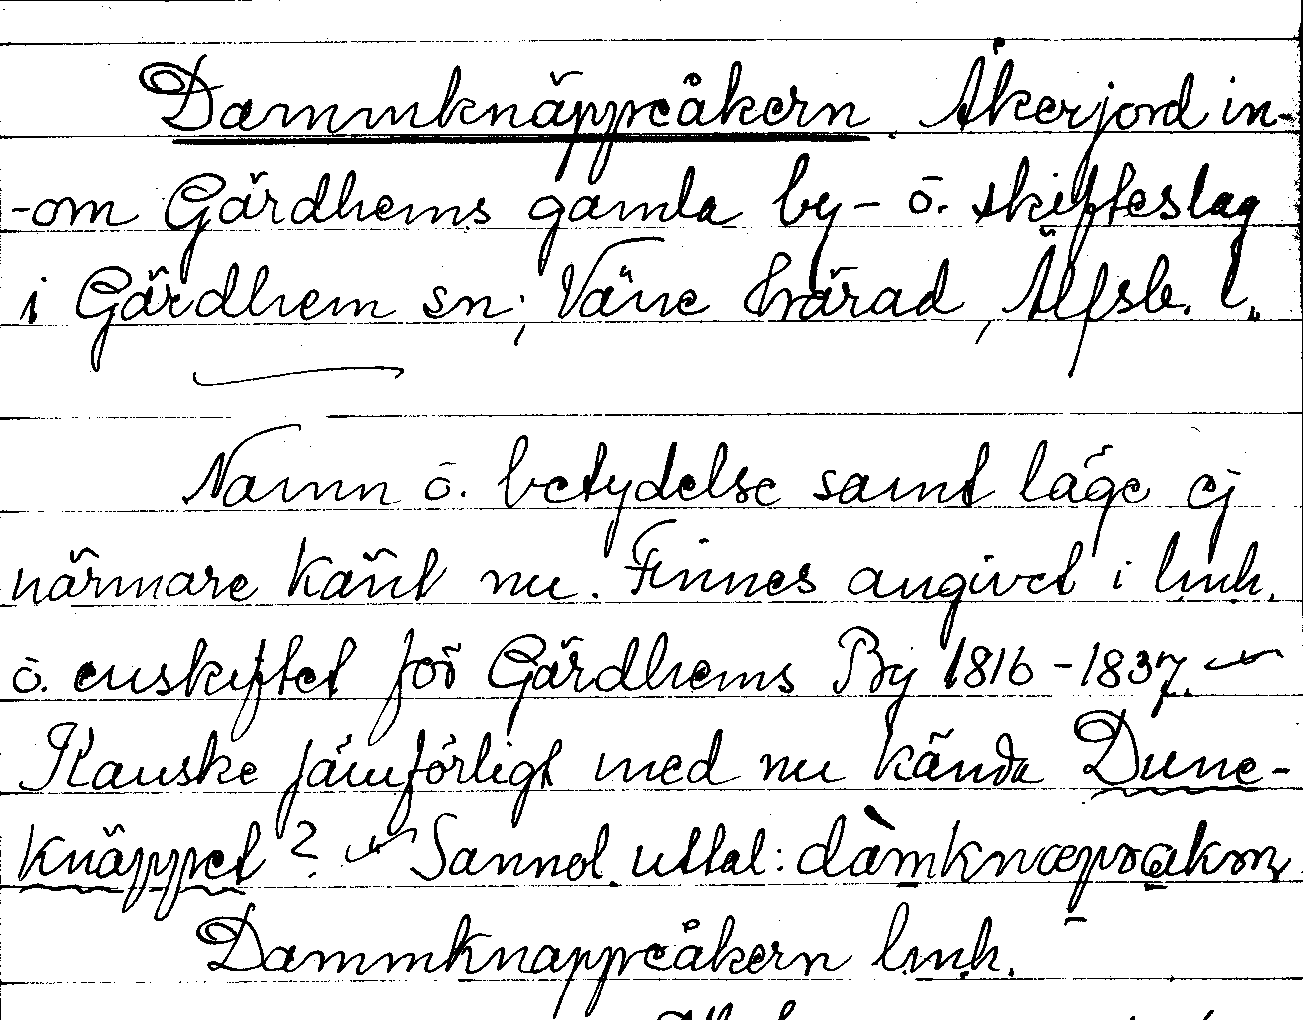 Dammknäppeåkern. Åkerjord in-
-om Gärdhems gamla by- o. skifteslag
i Gärdhem sn; Väne härad, Älfsb. l.
Namn o. betydelse samt läge ej
närmare känt nu. Finnes angivet i lmh.
o. enskiftet för Gärdhems By 1816-1837.
Kanske jämförligt med nu kända Dune-
knäppet? Sannol. uttal:
Dammknappeåkern lmh.